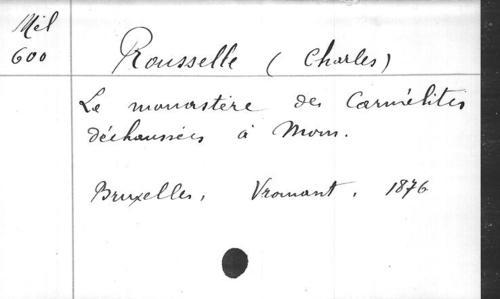 Mél
600
Rousselle (Charles)
Le monastère des Carmélites
déchaussées à Mons.
Bruxelles, Vromant, 1876